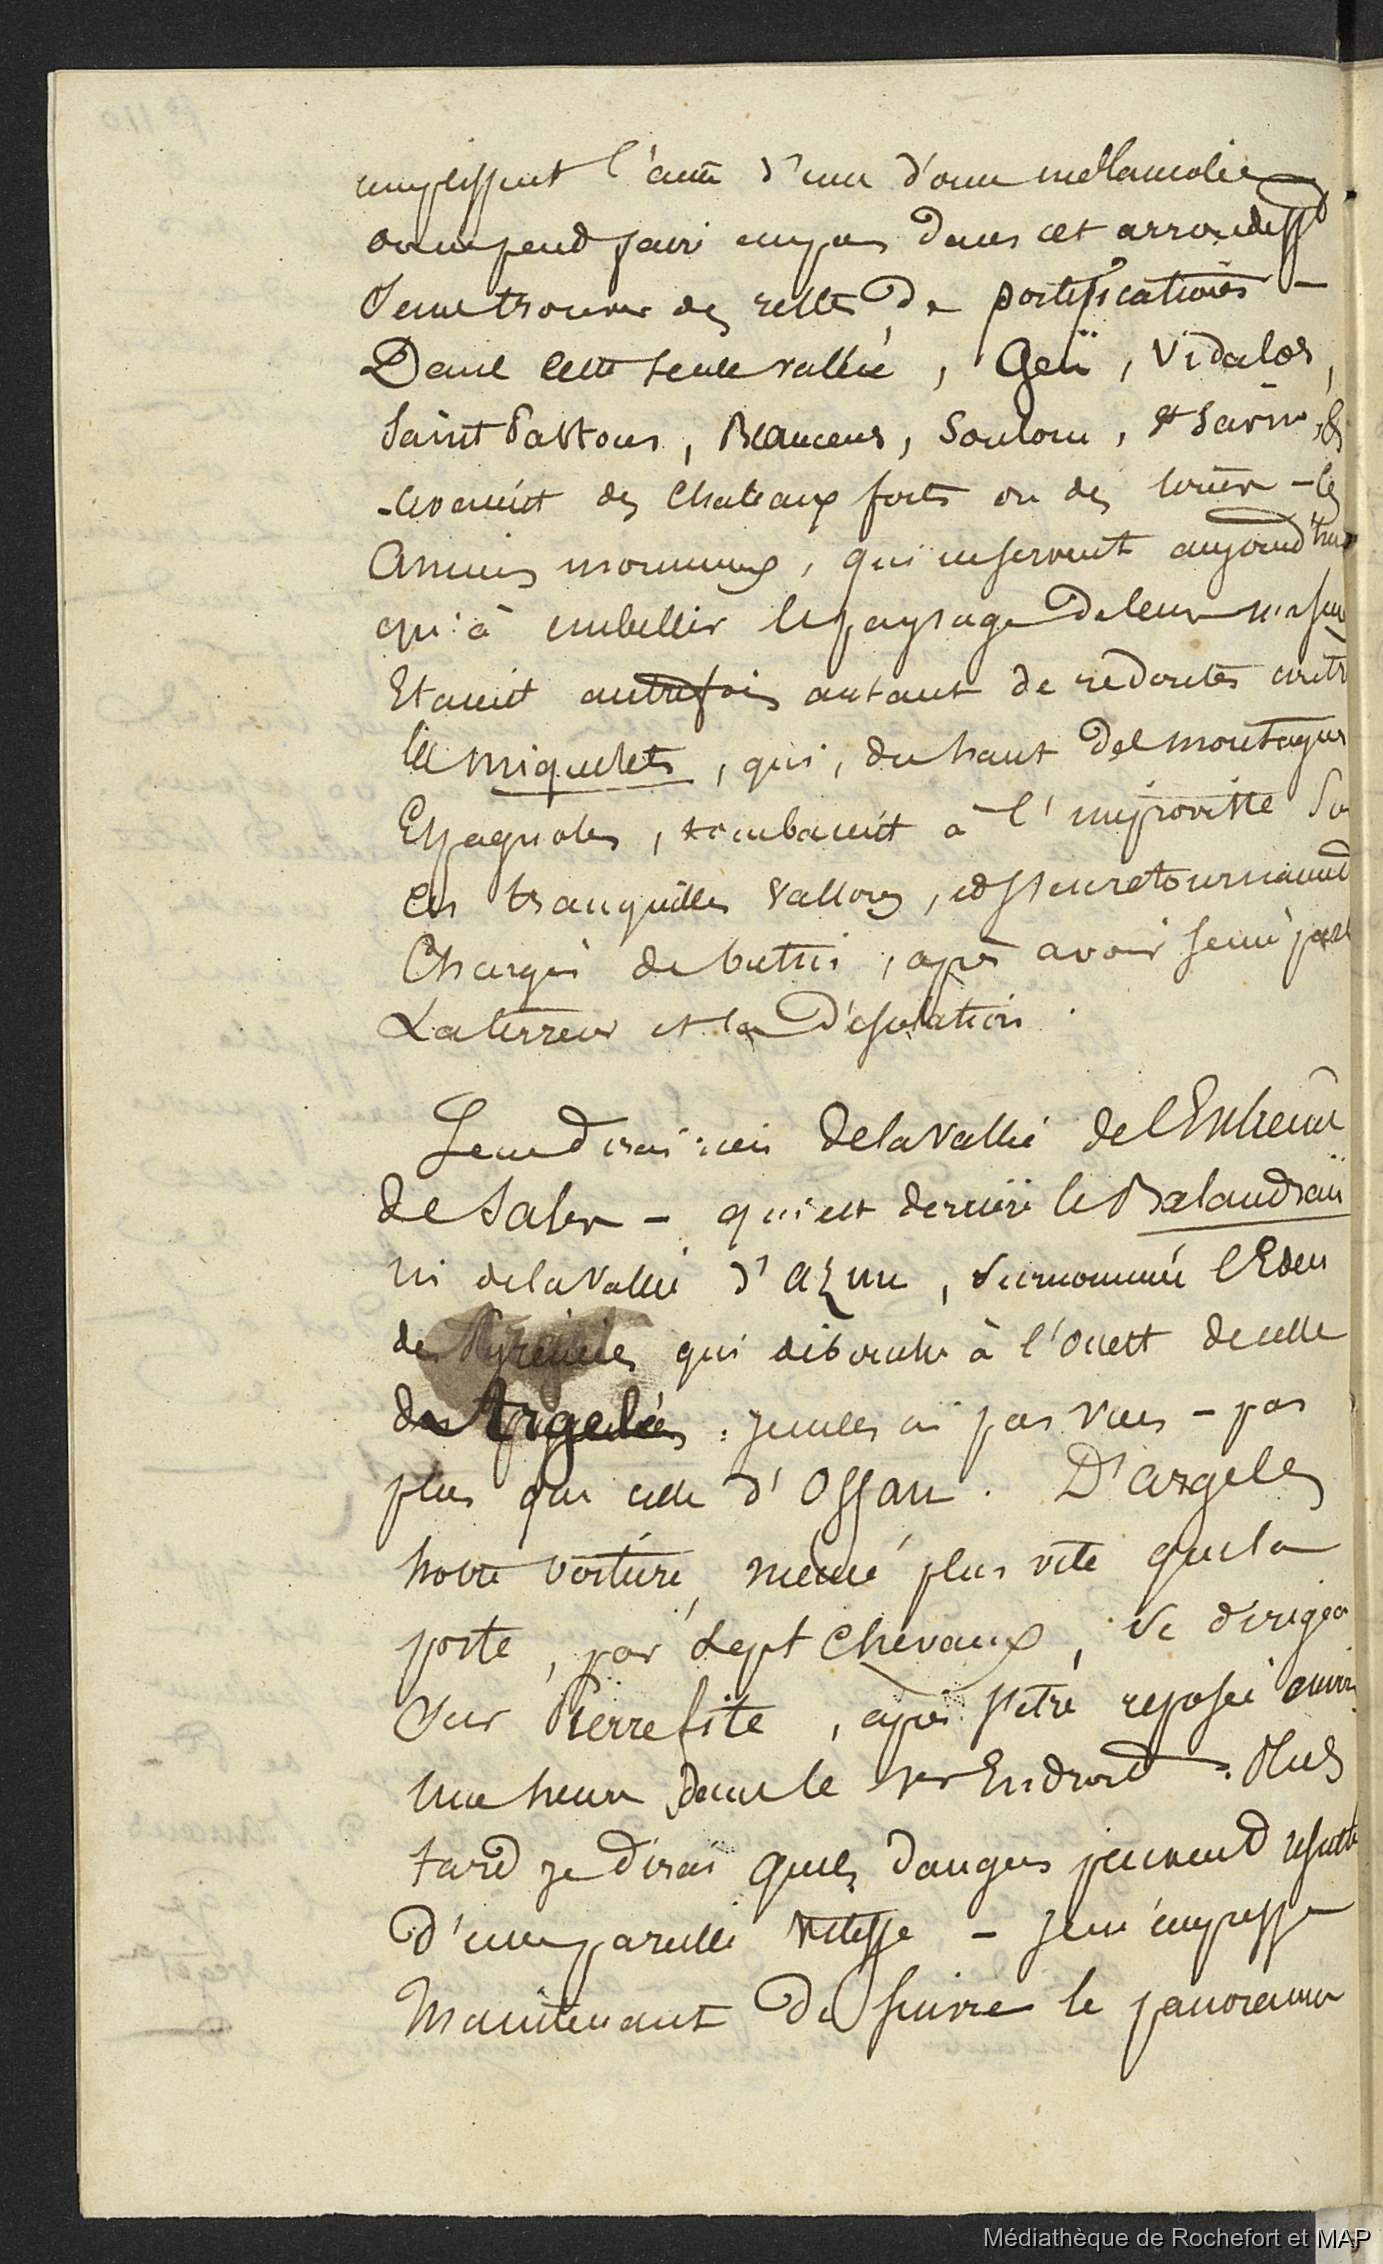 emplissent l'ame d'une douce mélancolie
on ne peut faire un pas dans cet arrondisst
sans trouver des restes de fortifications -
Dans cette seule vallée, Geü, Vidalos,
Saint Pastous, Beaucens, Soulom, et
-levaient des Chateaux forts ou des tours - les
anciens monuments, qui ne servent aujourd'hui
qu'à embellir le paysage de leurs masures
Etaient autrefois autant de redoutes contre
les miquelets, qui, du haut des montagnes
Espagnoles, tombaient à l'improviste su
ces tranquilles vallons, et s'en retournaient
Chargés de butin, après avoir semé part
La terreur et la Désolation.
Je ne dirai rien de la Vallée de l'Extreme
de Salex - qui est derrière le Balandraü
ni de la Vallée d'azun, surnommée l'Eden
des Pyrénées qui débouche à l'ouest de celle
des Argelès : je ne les ai pas vues - pas
plus que celle d'Ossau. D'argeles
notre voiture, menée plus vite que la
poste, par sept chevaux, se dirigea
sur Pierrefite, après s'être reposée envir
une heure dans le 1er Endroit. Plus
tard je dirai quels dangers peuvent résulte
d'une pareille vitesse - je m'empresse
Maintenant de suivre le panorama
Médiathèque de Rochefort et MAP